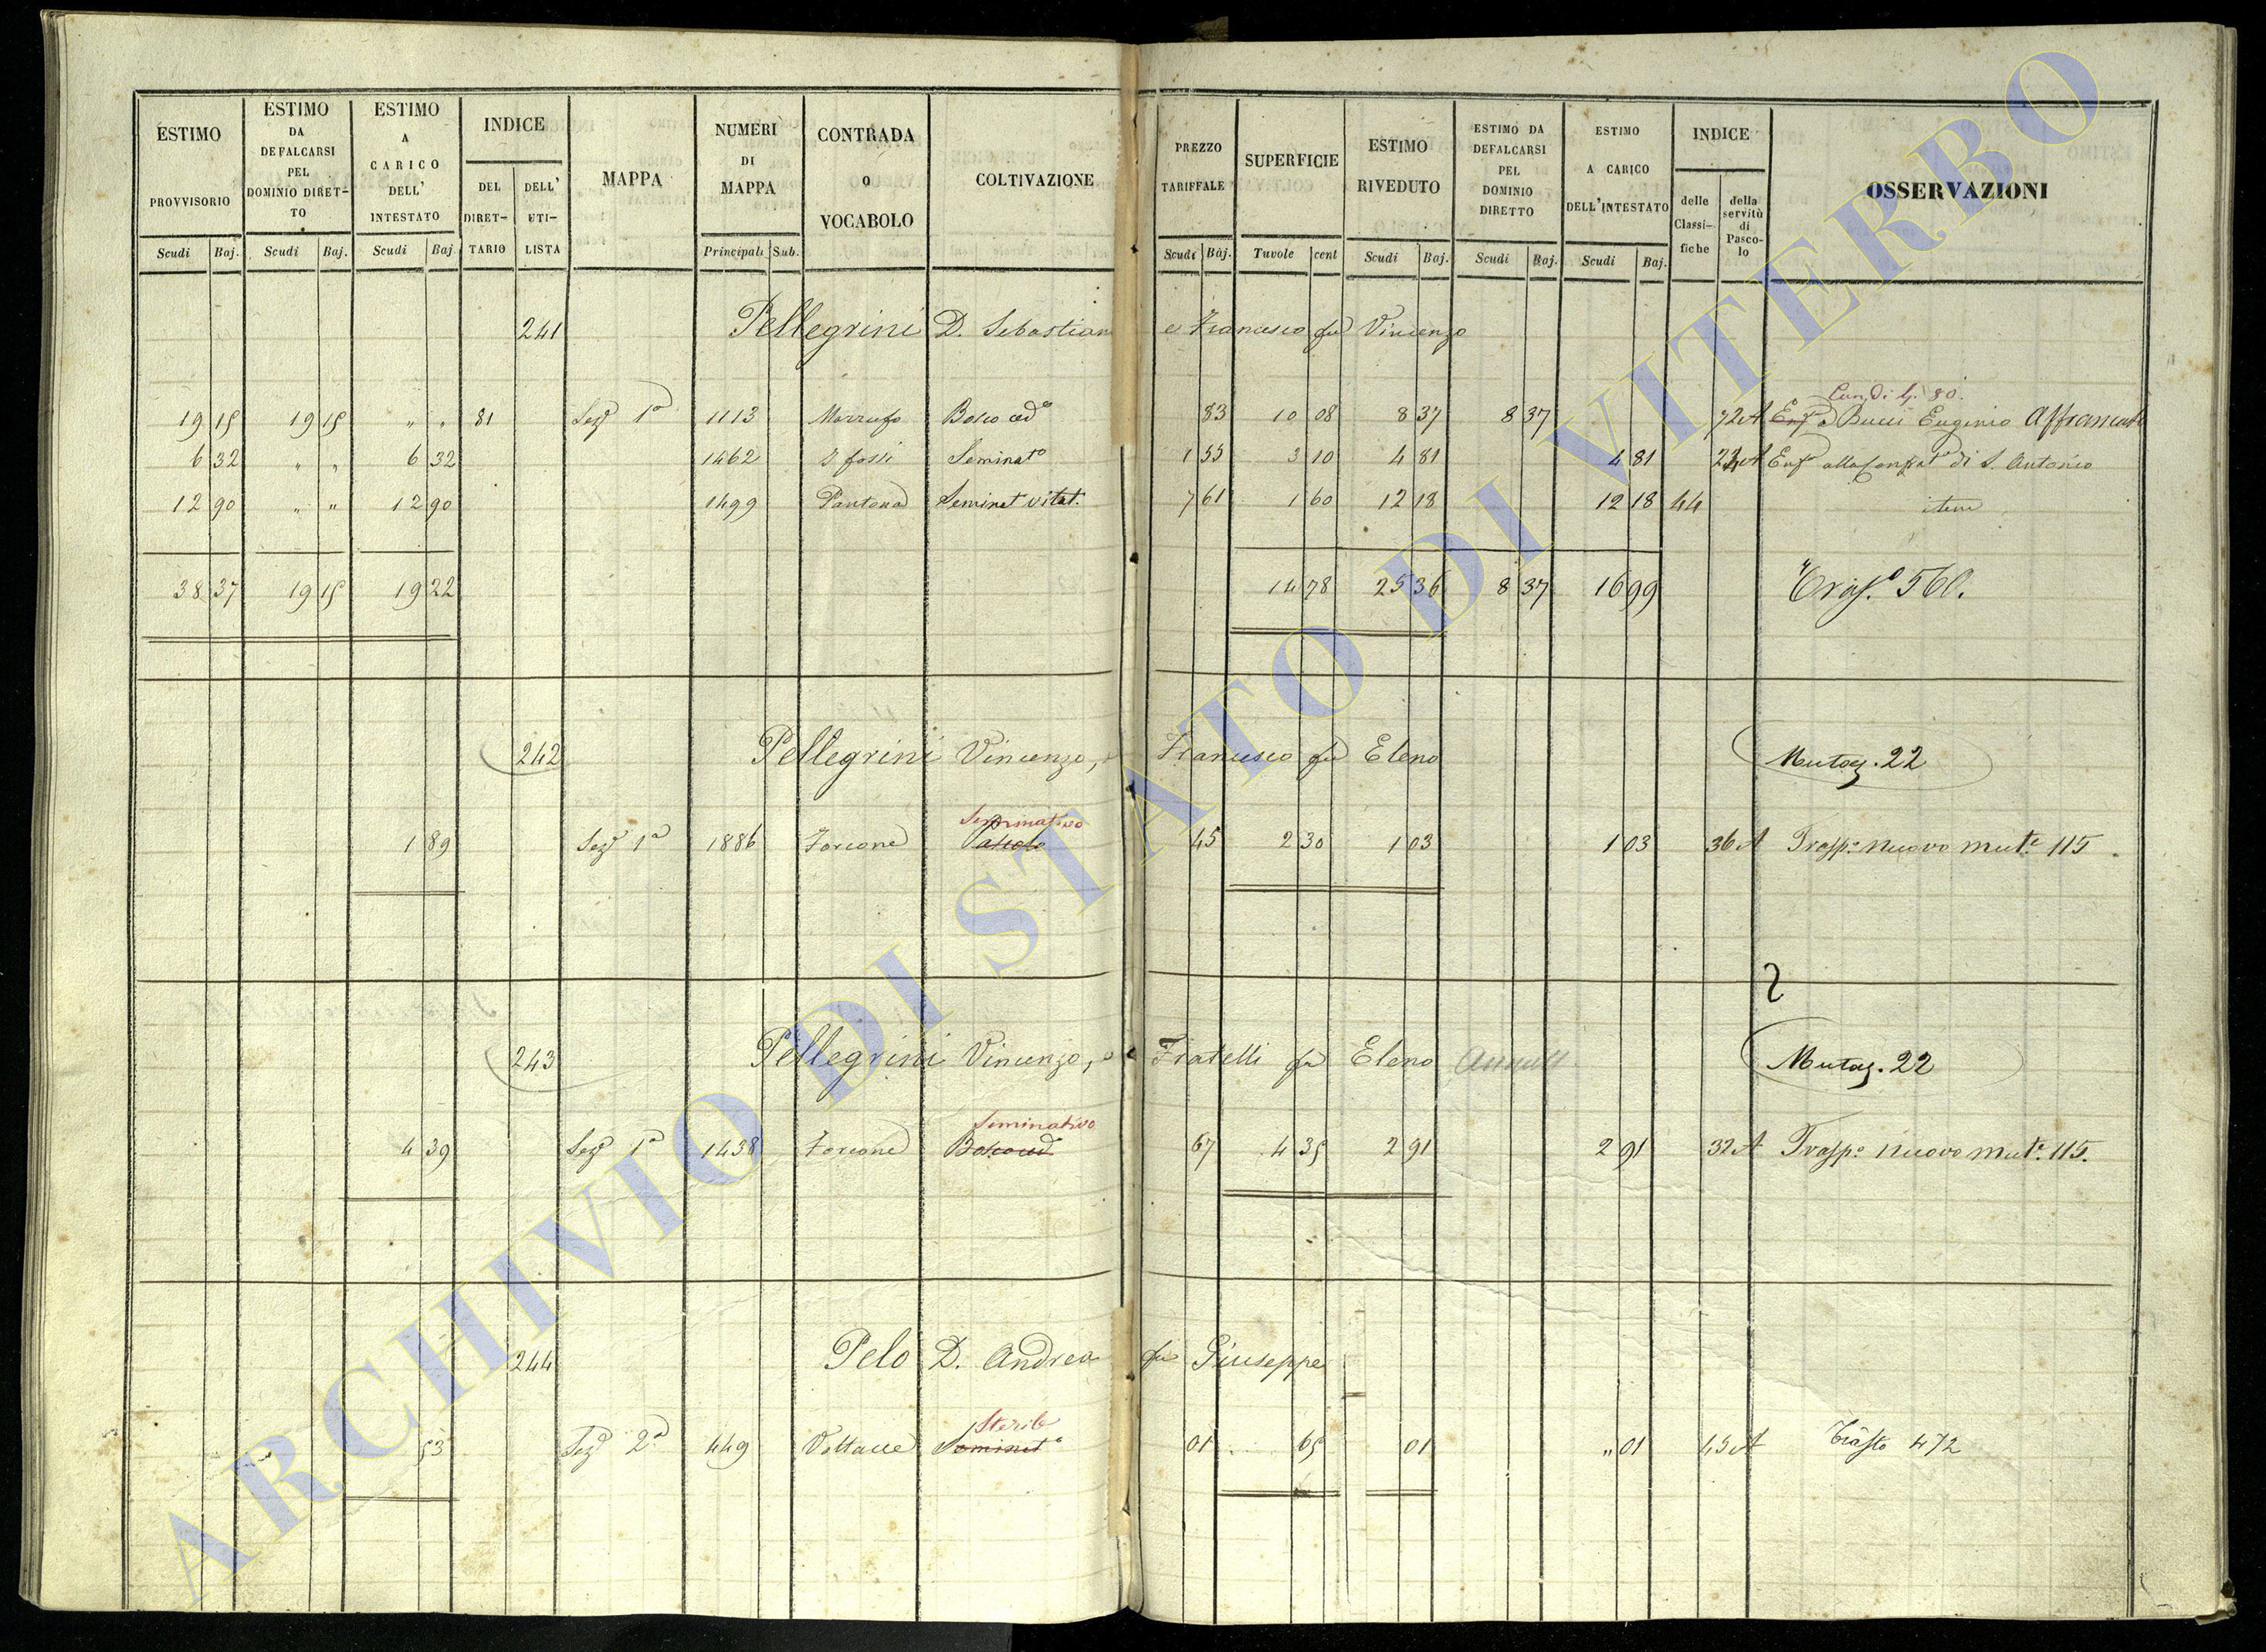 ESTIMO PROVVISORIO Scudi Baj.
ESTIMO DA DEFALCARSI PEL DOMINIO DIRET-TO Scudi Baj.
ESTIMO A CARICO DELL' INTESTATO Scudi Baj.
INDICE DEL DIRET-TARIO DELL' UTI-LISTA
MAPPA
NUMERI DI MAPPA Principali Sub.
CONTRADA O VOCABOLO
COLTIVAZIONE
PREZZO TARIFFALE Scudi Baj.
SUPERFICIE Tavole cent
ESTIMO RIVEDUTO Scudi Baj.
ESTIMO DA DEFALCARSI PEL DOMINIO DIRETTO Scudi Baj.
ESTIMO A CARICO DELL'INTESTATO Scudi Baj.
INDICE delle Classi-fiche della servitù di Pasco-lo
OSSERVAZIONI
241 Pellegrini D. Sebastian e Francesco fu Vincenzo
80.
19 15 19 15 " " 81 Seze 1a 1113 Bosco ced° 83 10 08 8 37 8 37 72 A Enf a Bucci Eugenio Affrancato
6 32 " " 6 32 1462 I fossi Seminat° 1 55 3 10 4 81 4 81 A Enf alla di S. Antonio
12 90 " " 12 90 1499 Pantana Seminat vitat. 7 61 1 60 12 18 12 18 44 item
38 37 19 15 19 22 14 78 25 36 8 37 16 99 Trasp.o 560.
242 Pellegrini Vincenzo, e Francesco fu Eleno Mutaz. 22
Seminativo
1 89 Seze 1a 1886 Forcone Pascolo 45 2 30 1 03 1 03 36 A Trasp.o nuovo mut.e 115
243 Pellegrini Vincenzo, e Fratelli fu Eleno Mutaz. 22
Seminativo
4 39 Seze 1a 1438 Forcone Bosco ced 67 4 35 2 91 2 91 32 A Trasp.o nuovo mut.e 115.
244 Pelo D. Andrea fu Giuseppe
Sterile
53 Seze 2a 449 Seminat° 01 65 01 " 01 45 A Trasto 472
ARCHIVIO DI STATO DI VITERBO